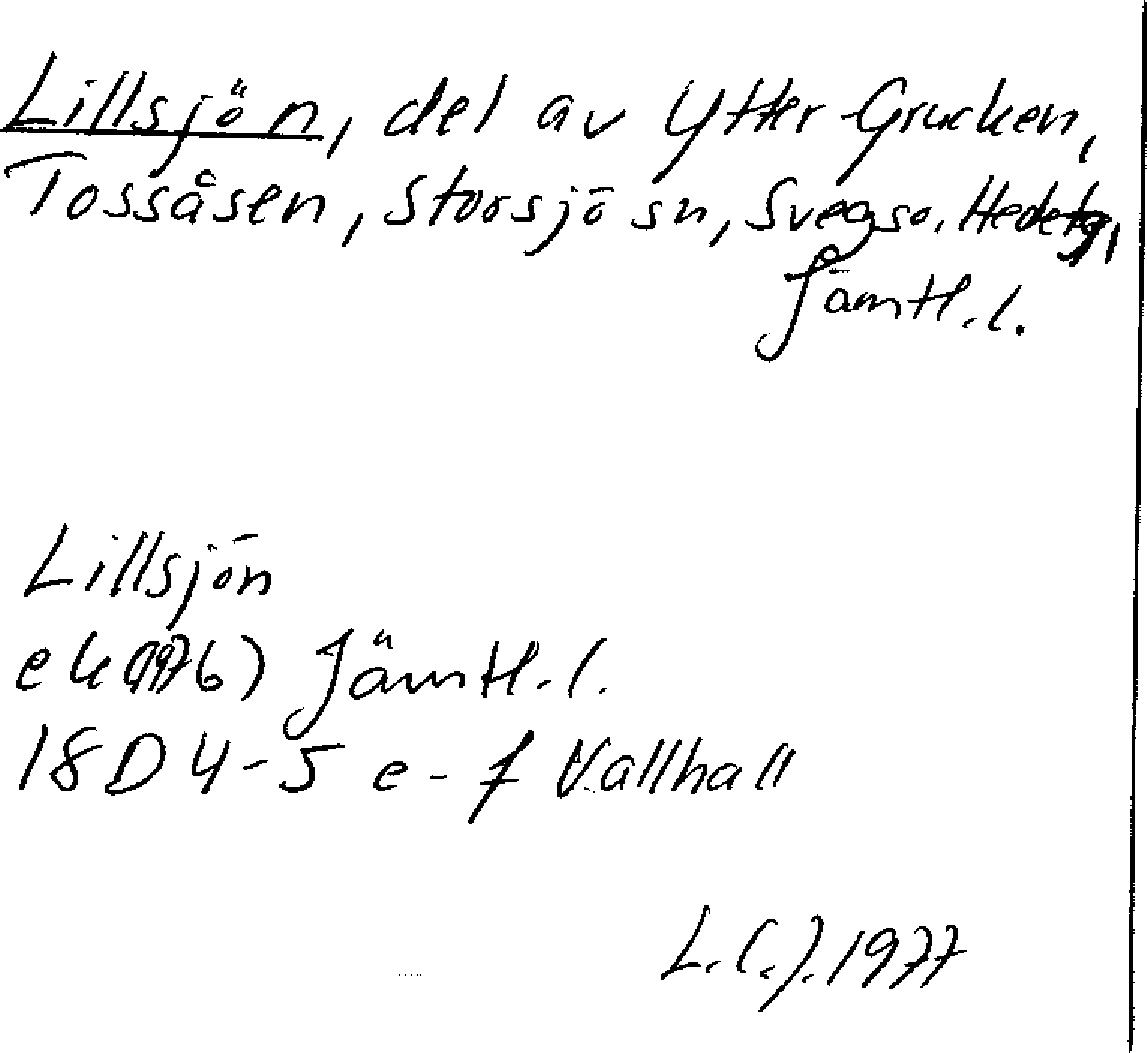 Lillsjön, del av Ytter-Grucken,
Tossåsen, Storsjö sn, Svegs so. Hede tg,
Jämtl. l.
Lillsjön
ek (1976) Jämtl. l.
18D 4-5 e-f Vallhall
L.C.J. 1977